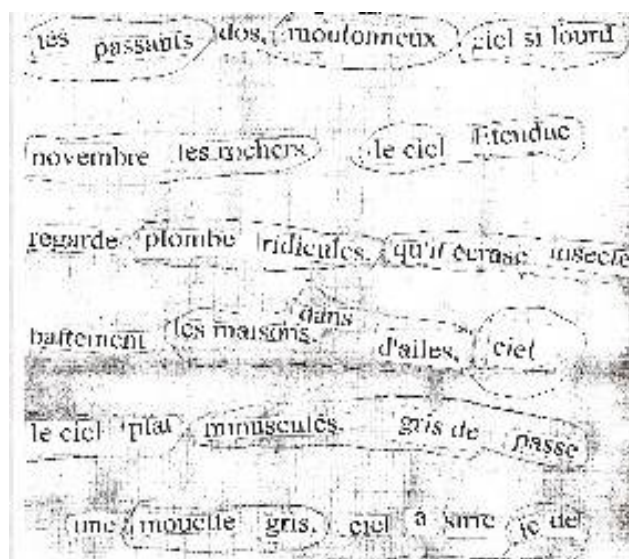 les passants dos, moutonneux ciel si lourd
novembre les rochers le ciel Étendue
regarde plombe ridicules, qu'il écrase insecte
battement les maisons, dans d'ailes, ciel
le ciel plat minuscules gris de passe
une mouette gris, ciel à